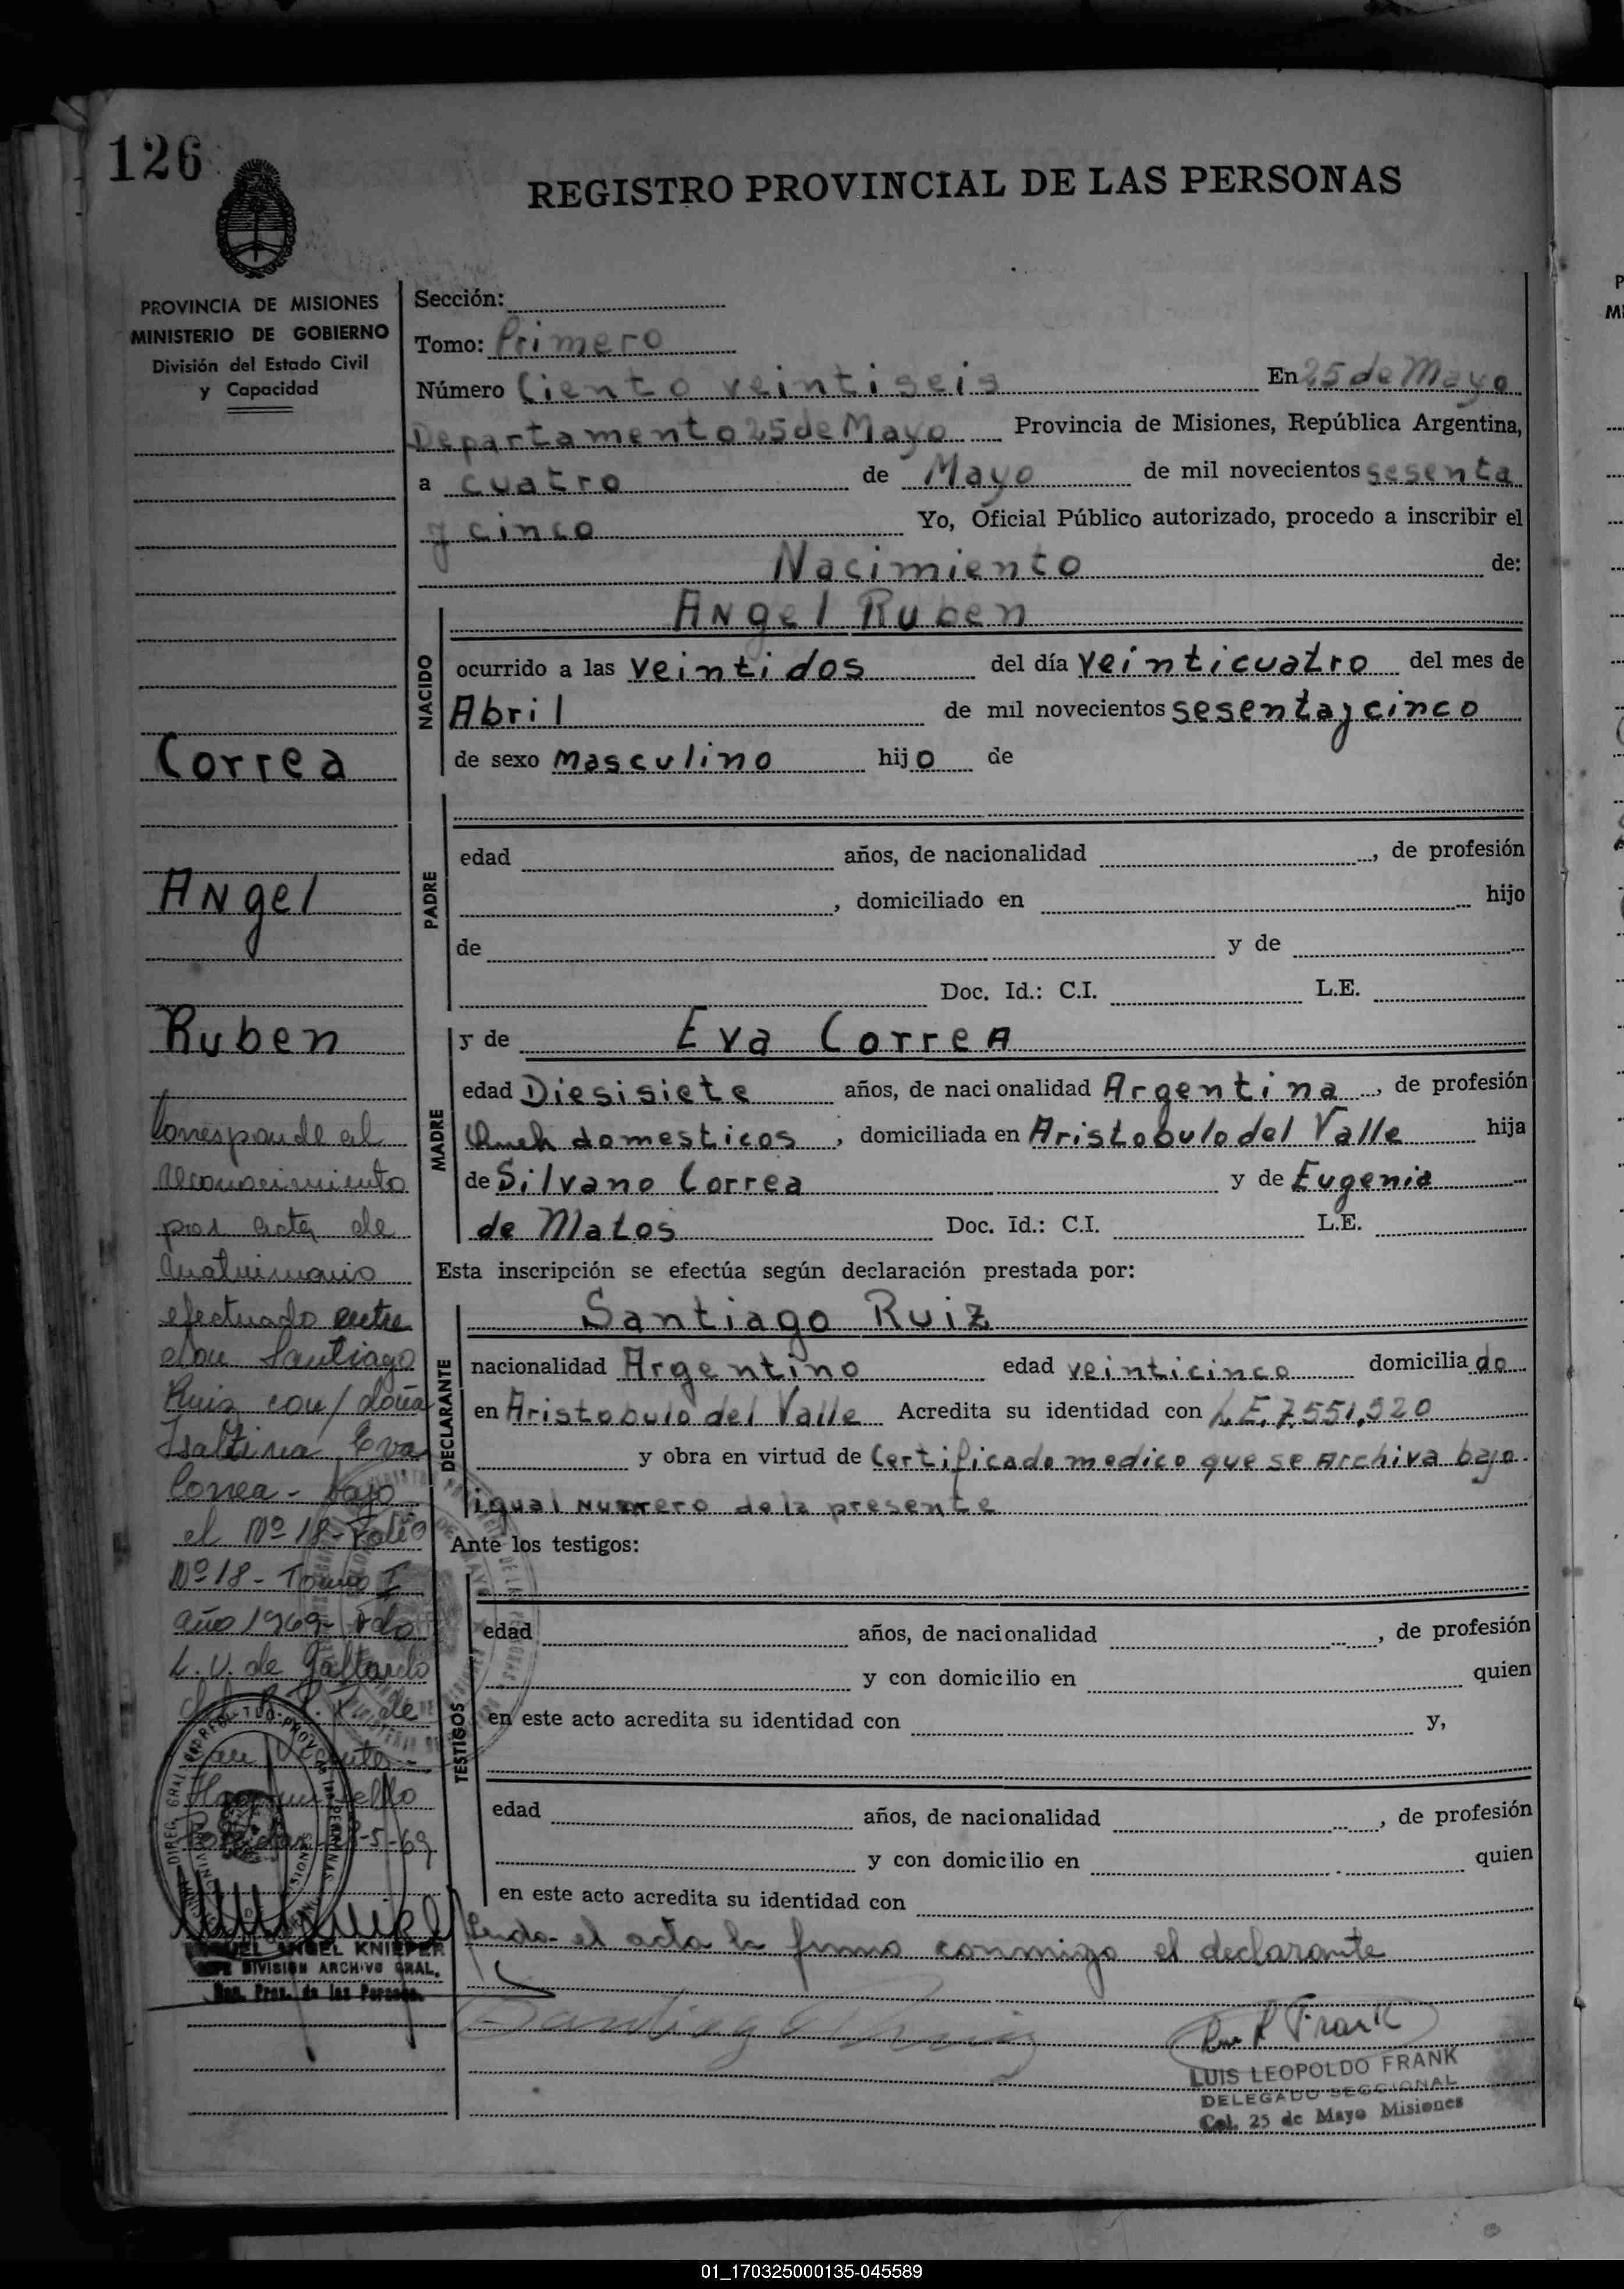 126
REGISTRO PROVINCIAL DE LAS PERSONAS
PROVINCIA DE MISIONES
MINISTERIO DE GOBIERNO
División del Estado Civil
y Capacidad
Correa
Angel
Ruben
Corresponde al
reconocimiento
por acta de
matrimonio
efectuado entre
don Santiago
Ruiz con/doña
Isaltina Eva
Correa - bajo
el Nº 18 - Folio
Nº 18 - Tomo I
año 1969 - Fdo
L. V. de Gallardo
de
Vicente
Hay un sello
Posadas 8-5-69
ANGEL KNIEPER
DIVISION ARCHIVO GRAL.
Reg. Prov. de las Personas
Sección:
Tomo: Primero
Número Ciento veintiseis En 25 de Mayo
Departamento 25 de Mayo Provincia de Misiones, República Argentina,
a cuatro de Mayo de mil novecientos sesenta
y cinco Yo, Oficial Público autorizado, procedo a inscribir el
Nacimiento de:
NACIDO
Angel Ruben
ocurrido a las veintidos del día veinticuatro del mes de
Abril de mil novecientos sesenta y cinco
de sexo masculino hijo de
PADRE
edad años, de nacionalidad , de profesión
, domiciliado en hijo
de y de
Doc. Id.: C.I. L.E.
MADRE
y de Eva Correa
edad Diesisiete años, de nacionalidad Argentina , de profesión
domesticos , domiciliada en Aristobulo del Valle hija
de Silvano Correa y de Eugenia
de Matos Doc. Id.: C.I. L.E.
Esta inscripción se efectúa según declaración prestada por:
DECLARANTE
Santiago Ruiz
nacionalidad Argentino edad veinticinco domiciliado
en Aristobulo del Valle Acredita su identidad con L.E. 7.551.520
y obra en virtud de Certificado medico que se Archiva bajo
igual numero de la presente
Ante los testigos:
TESTIGOS
edad años, de nacionalidad , de profesión
y con domicilio en quien
en este acto acredita su identidad con y,
edad años, de nacionalidad , de profesión
y con domicilio en quien
en este acto acredita su identidad con
Leida el acta la firma conmigo el declarante
Santiago Ruiz
Frank
LUIS LEOPOLDO FRANK
DELEGADO SECCIONAL
Col. 25 de Mayo Misiones
01_170325000135-045589